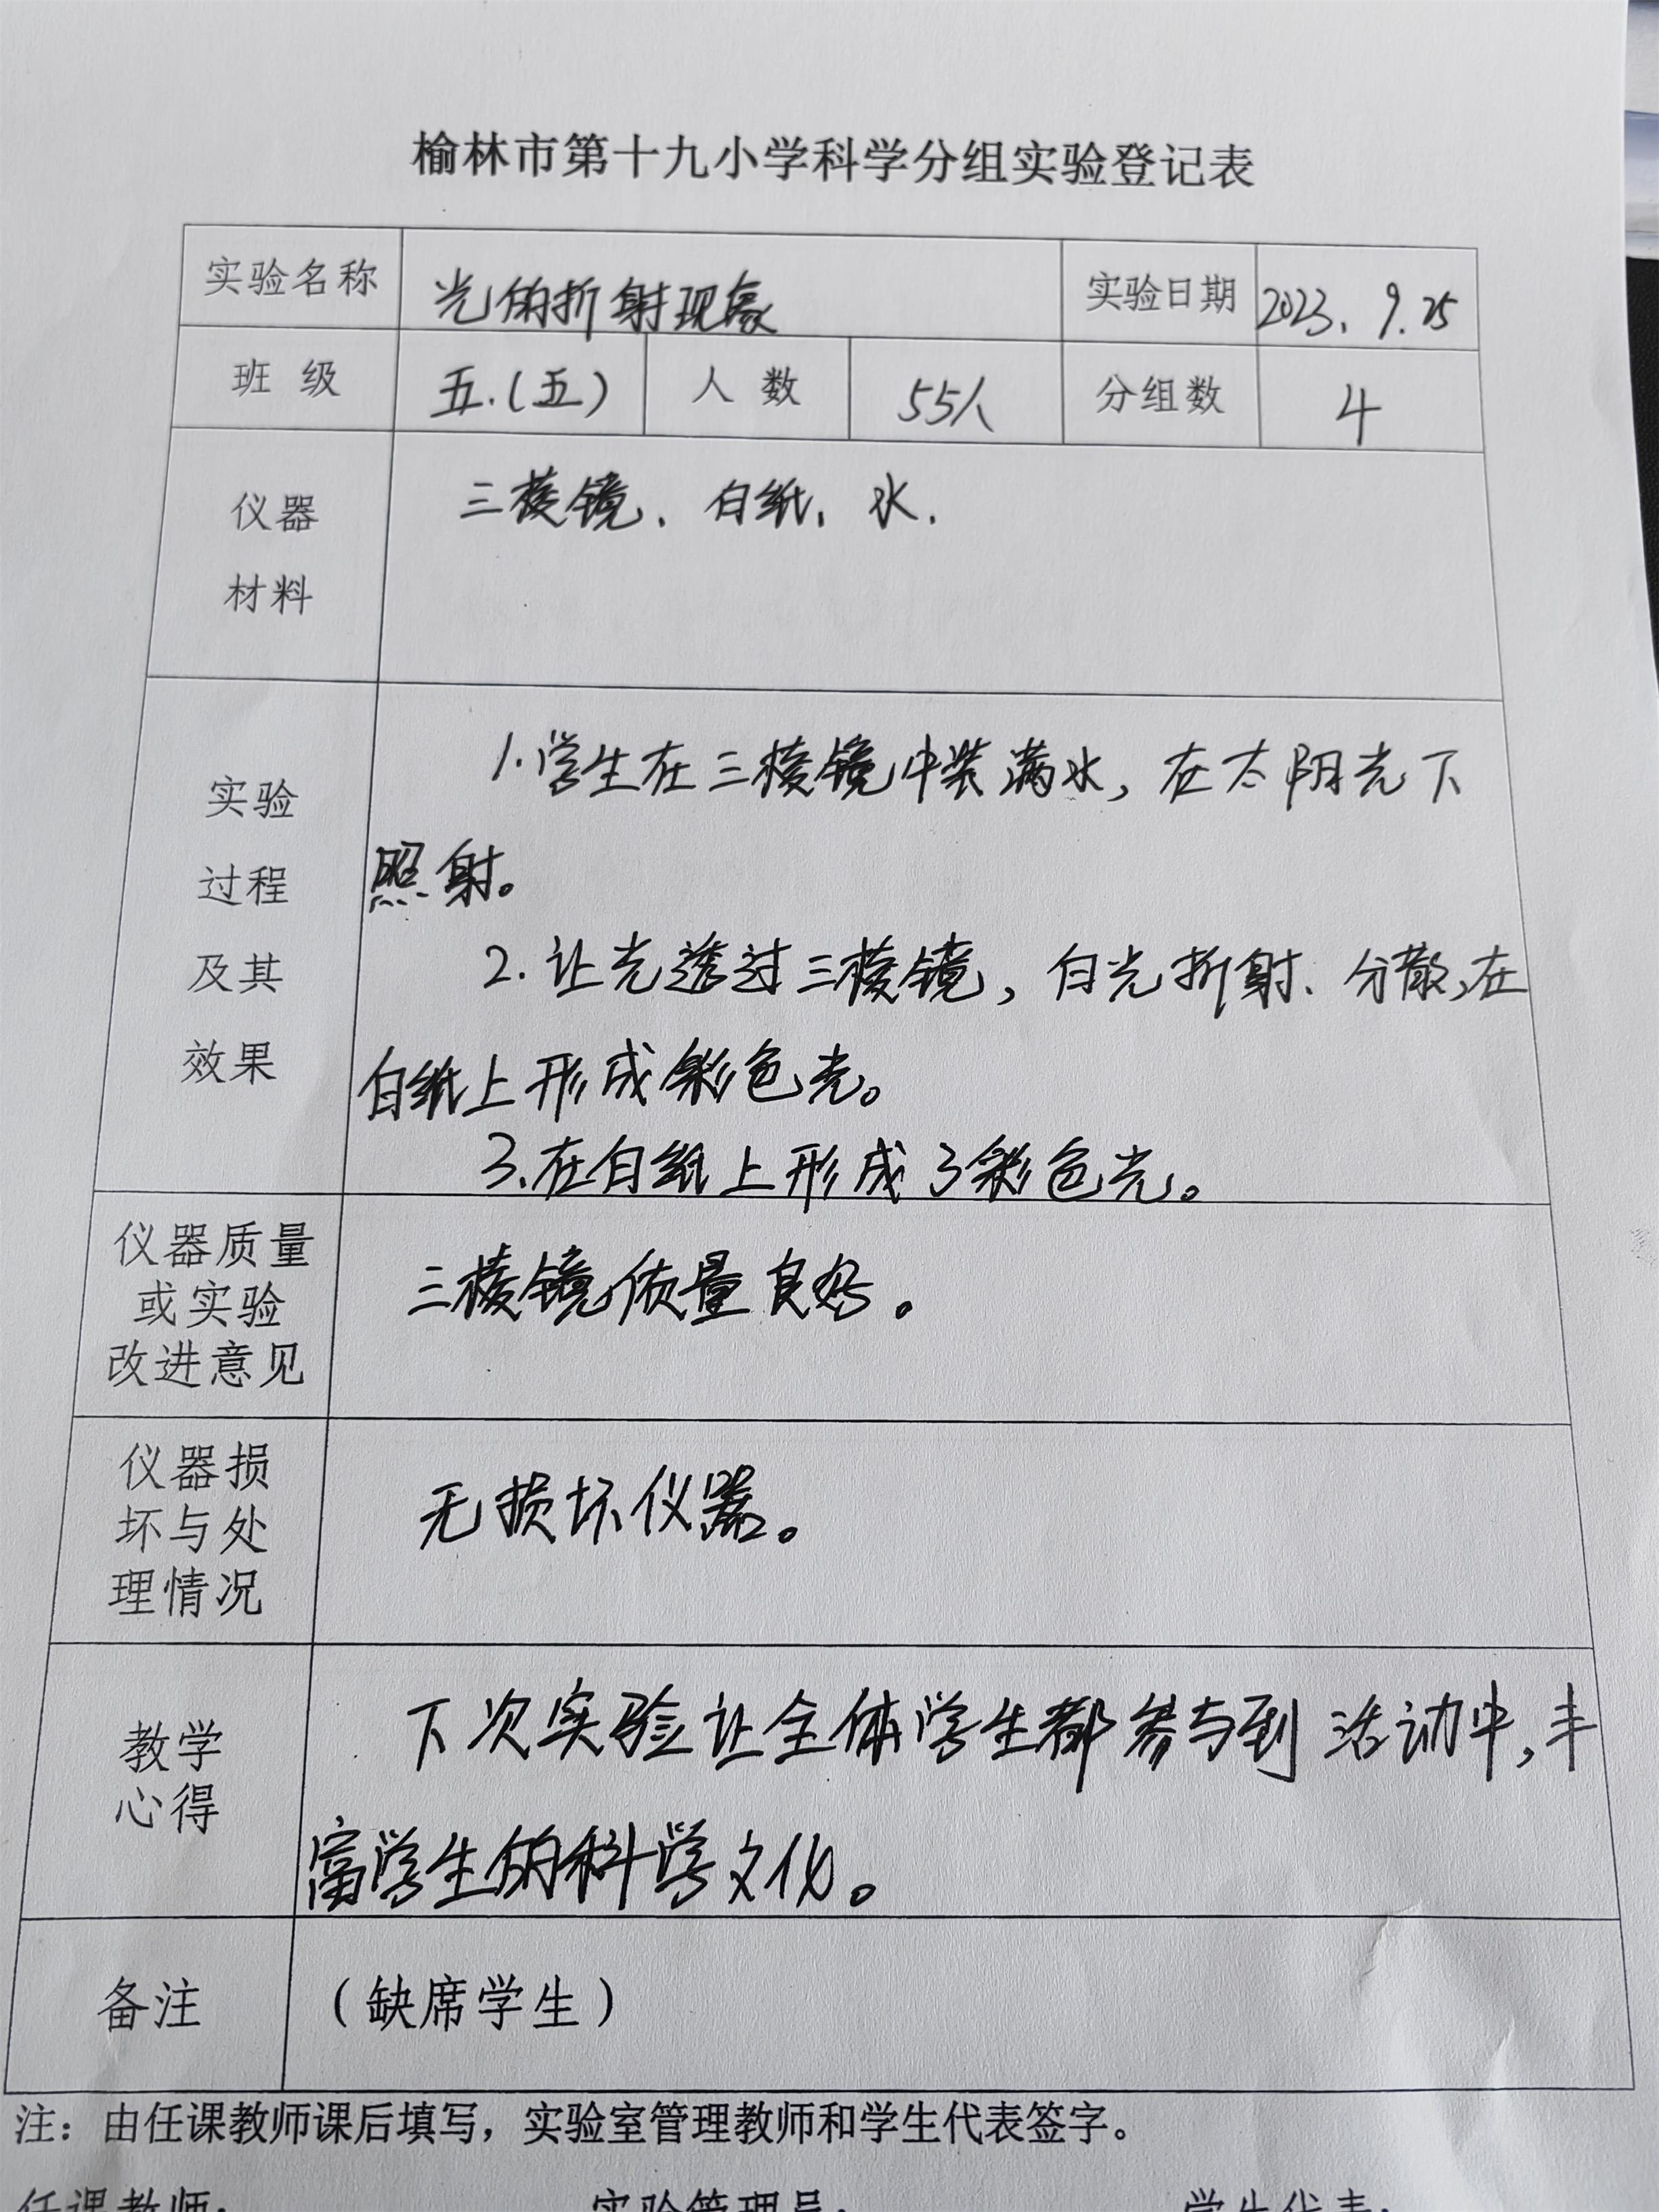 榆林市第十九小学科学分组实验登记表
实验名称 光的折射现象 实验日期 2023.9.25
班级 五.(五) 人数 55人 分组数 4
仪器
材料
三棱镜、白纸、水.
实验
过程
及其
效果
1.学生在三棱镜中装满水，在太阳光下
照射。
2.让光透过三棱镜，白光折射、分散,在
白纸上形成彩色光。
3.在白纸上形成了彩色光。
仪器质量
或实验
改进意见
三棱镜质量良好。
仪器损
坏与处
理情况
无损坏仪器。
教学
心得
下次实验让全体学生都参与到活动中,丰
富学生的科学文化。
备注 （缺席学生）
注：由任课教师课后填写，实验室管理教师和学生代表签字。
任课教师： 实验管理员： 学生代表：